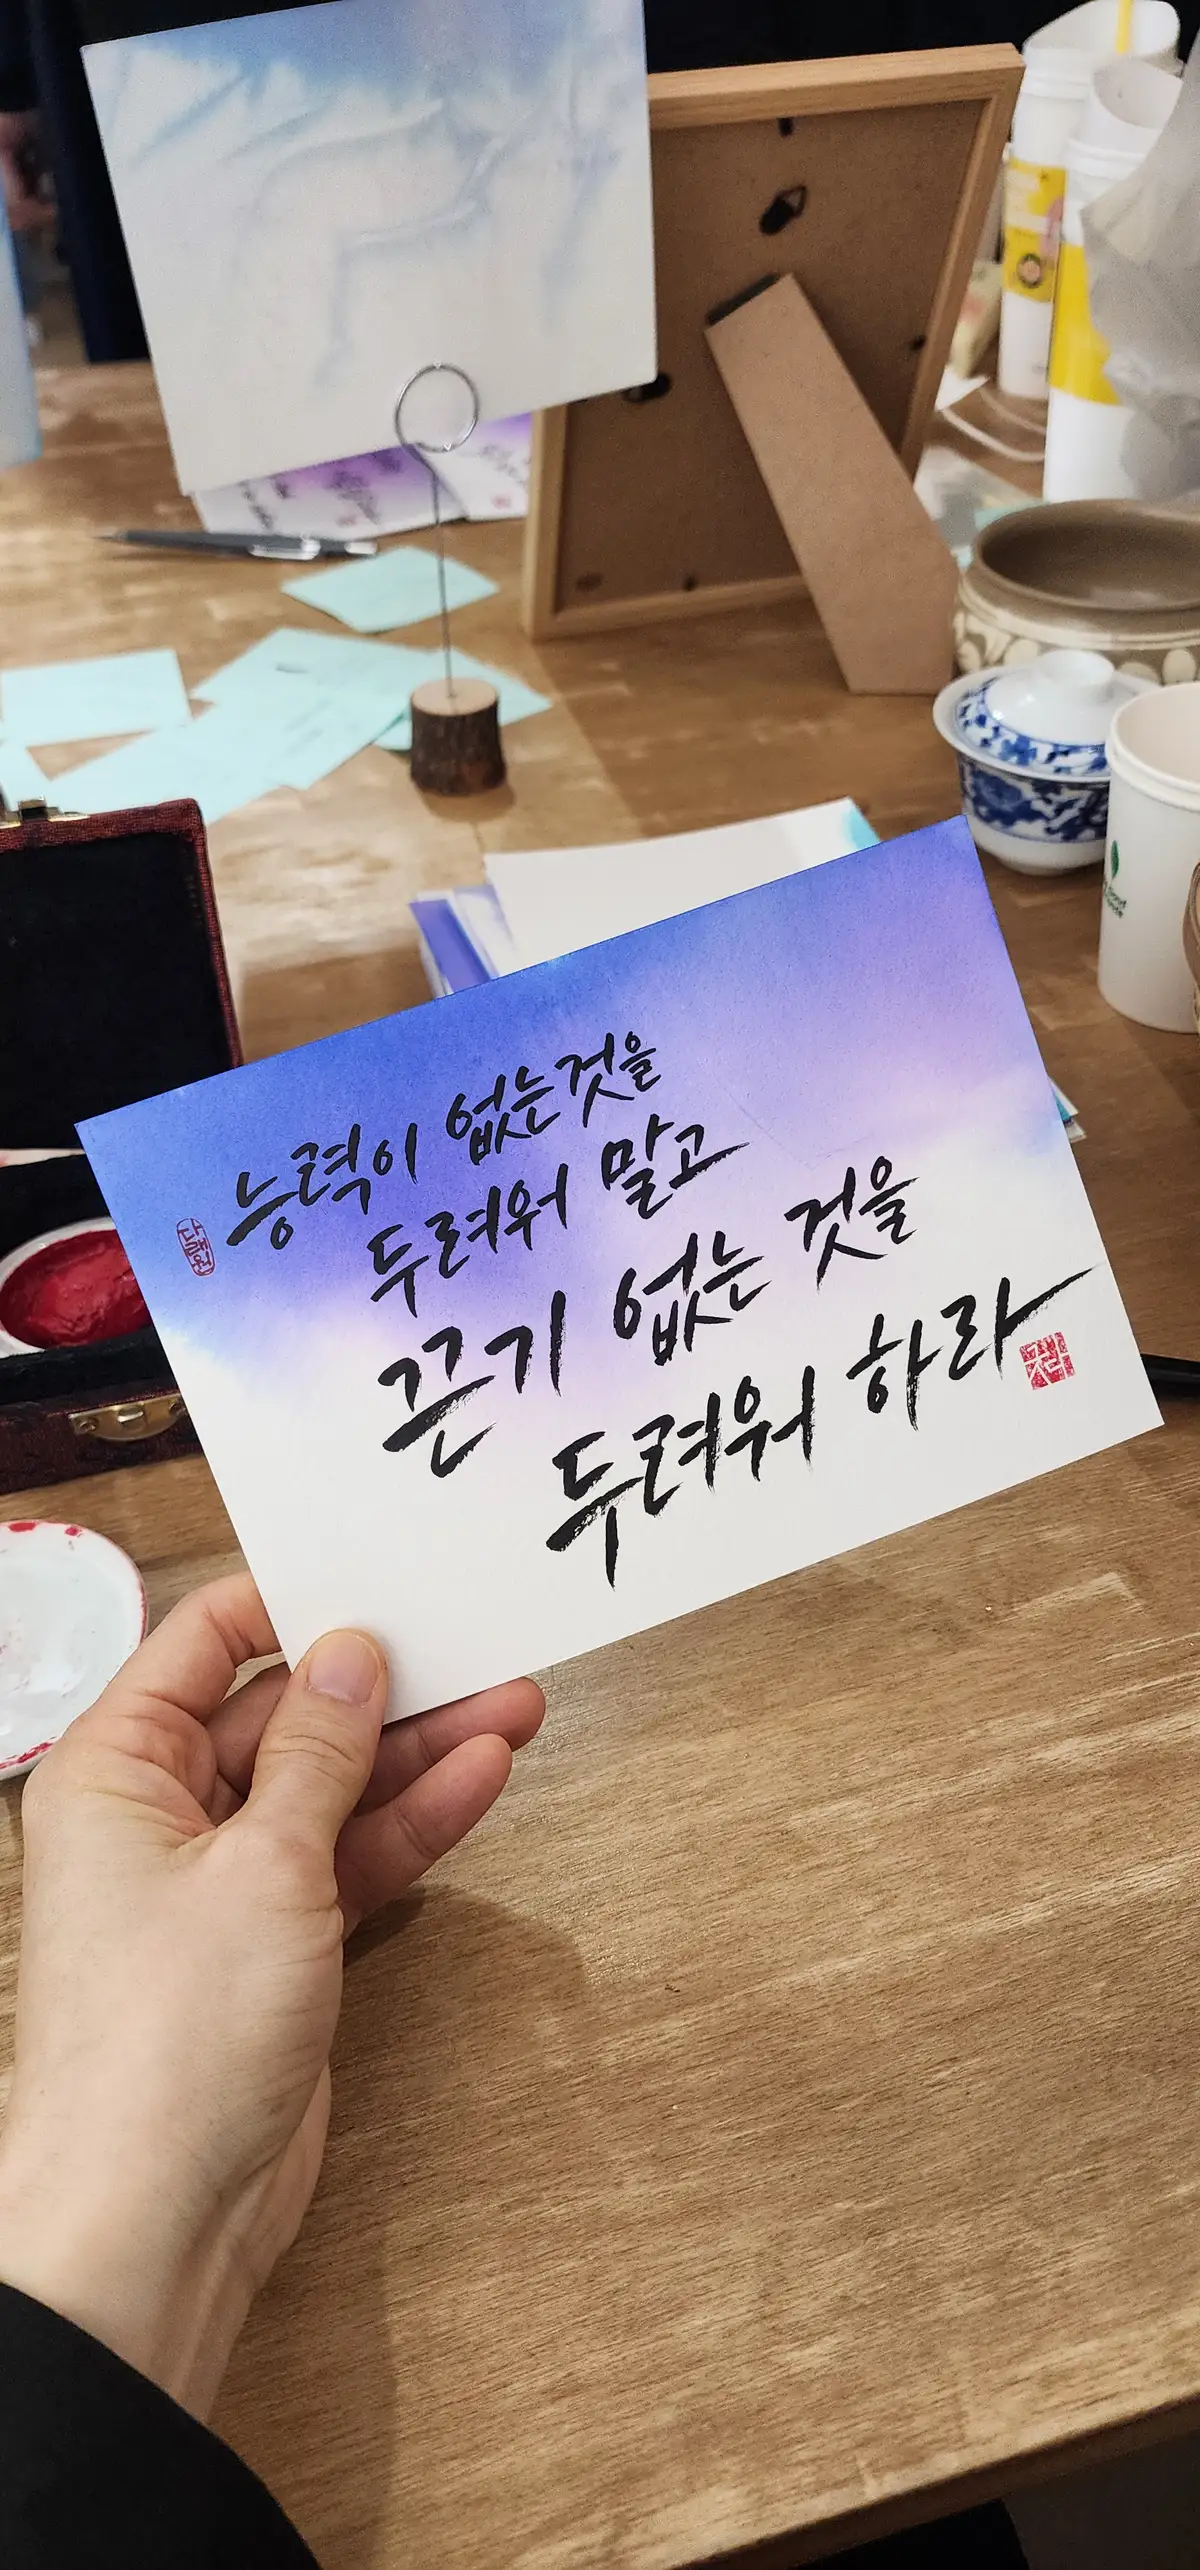 능력이 없는것을
두려워 말고
끈기 없는 것을
두려워 하라